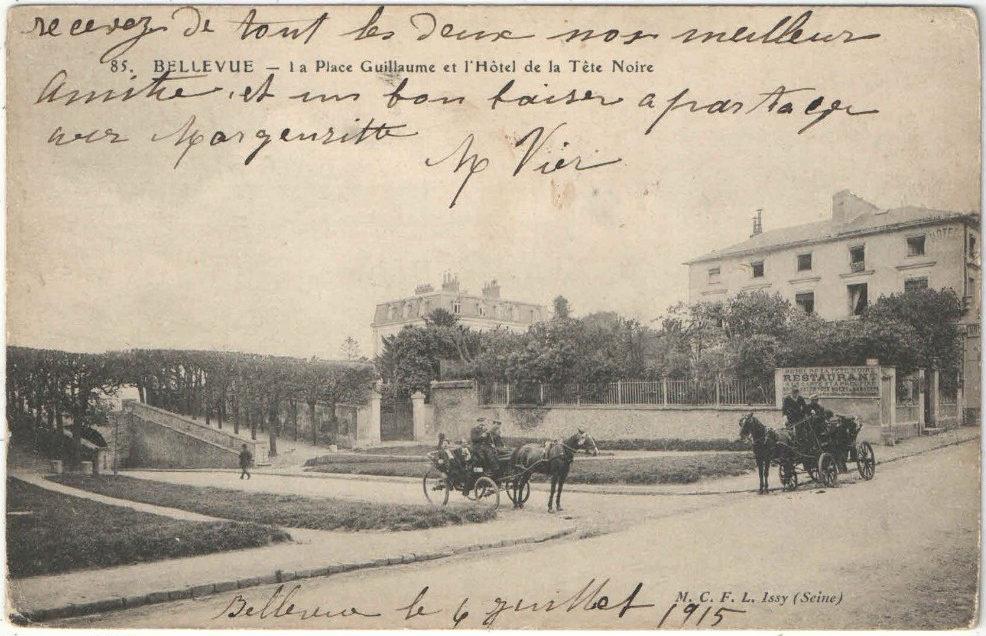 recevez de tout les deux nos meilleur
85. BELLEVUE — La Place Guillaume et l'Hôtel de la Tête Noire
Amitie et un bon baiser a partager
avec Margeuritte
M Vier
HOTEL
RESTAURANT
M. C. F. L. Issy (Seine)
Bellevue le 6 guillet 1915